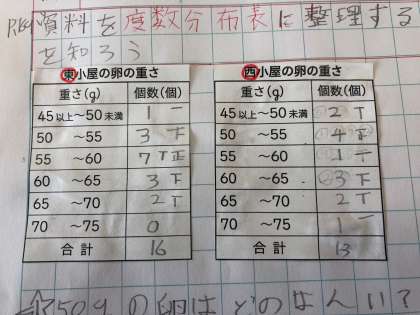 資料を度数分布長に整理する
を知ろう
東小屋の卵の重さ
重さ(g) 個数(個)
45以上~50未満 1 一
50 ~55 3 下
55 ~60 7 丅正
60 ~65 3 下
65 ~70 2 丅
70 ~75 0
合計 16
西小屋の卵の重さ
重さ(g) 個数(個)
45以上~50未満 2 丅
50 ~55 4 正
55 ~60 1 一
60 ~65 3 下
65 ~70 2 丅
70 ~75 1 一
合計 13
50gの卵はどのはんい?